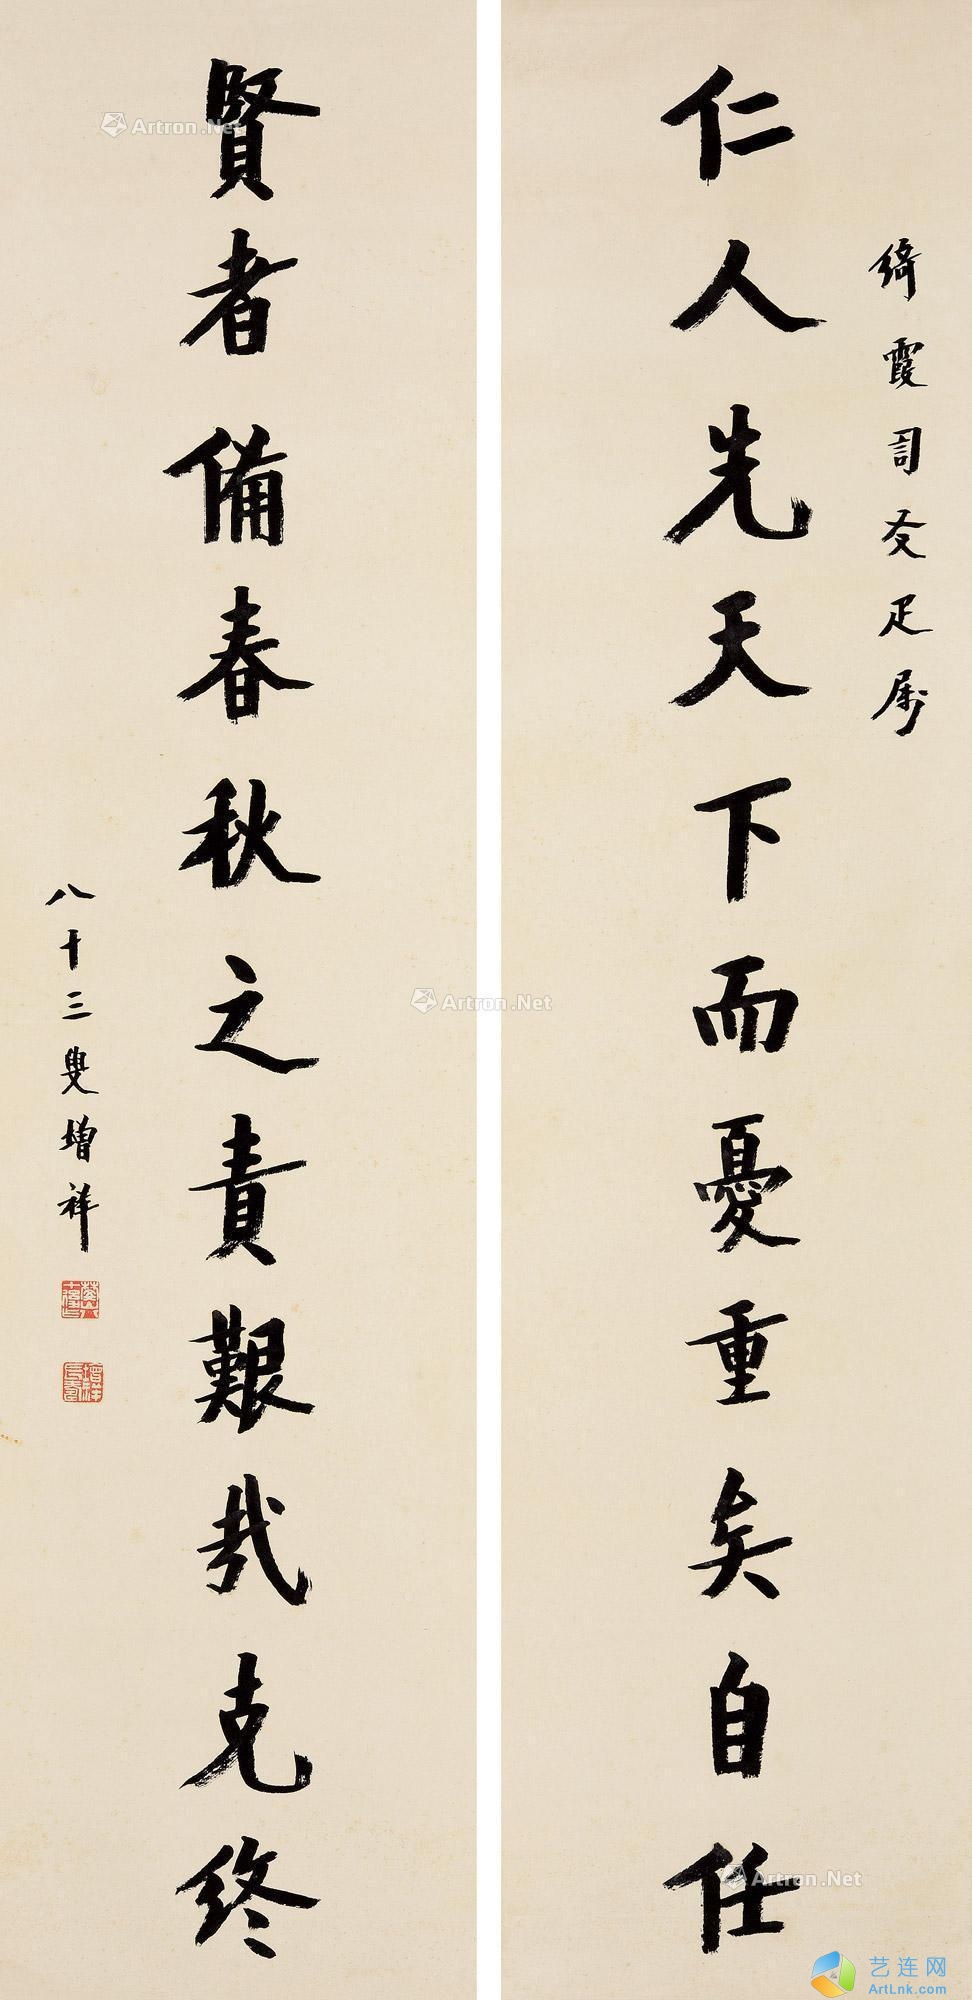 綺霞詞友疋屬
仁人先天下而憂重矣自任
賢者備春秋之責艱哉克終
八十三叟增祥
Artron.Net
Artron.Net
Artron.Net
艺连网
ArtLnk.com